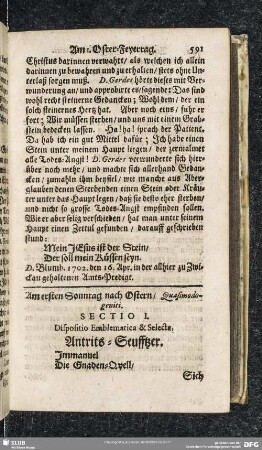 Am 1. Oster-Feyertag. 591
Christus darinnen verwahrt/ als welchen ich allein
darinnen zu bewahren und zu erhalten/ stets ohne Un-
terlaß sorgen muß. D. Gerder hörte dieses mit Ver-
wunderung an/ und approbirte es/ sagende: Das sind
wohl recht steinerne Gedancken; Wohl dem/ der ein
solch steinernes Hertz hat. Aber noch eins/ fuhr er
fort; Wir müssen sterben/ und uns mit einem Grab-
stein bedecken lassen. Ha! ha! sprach der Patient.
Da hab ich ein gut Mittel dafür; Ich habe einen
Stein unter meinem Haupt liegen/ der zermalmet
alle Todes-Angst! D. Gerder verwunderte sich hier-
über noch mehr/ und machte sich allerhand Gedan-
cken/ zumahln ihm bewust/ wie manche aus Aber-
glauben denen Sterbenden einen Stein oder Kräu-
ter unter das Haupt legen/ daß sie desto eher sterben/
und nicht so grosse Todes-Angst empfinden sollen.
Wie er aber selig verschieden/ hat man unter seinem
Haupt einen Zettul gefunden/ darauff geschrieben
stund:
Mein JEsus ist der Stein/
Der soll mein Küssen seyn.
D. Blumb. 1702. den 16. Apr. in der allhier zu Zwi-
ckau gehaltenen Amts-Predigt.
Am ersten Sonntag nach Ostern/ Quasimodo-
geniti.
SECTIO I.
Dispositio Emblematica & Selecta.
Antrits-Seufftzer.
Immanuel
Die Gnaden-Qvell/
Sich
SLUB